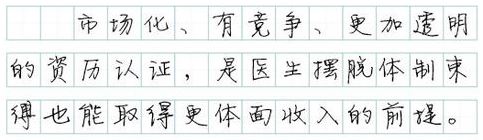 市场化、有竞争、更加透明
的资历认证，是医生摆脱体制束
缚也能取得更体面收入的前提。